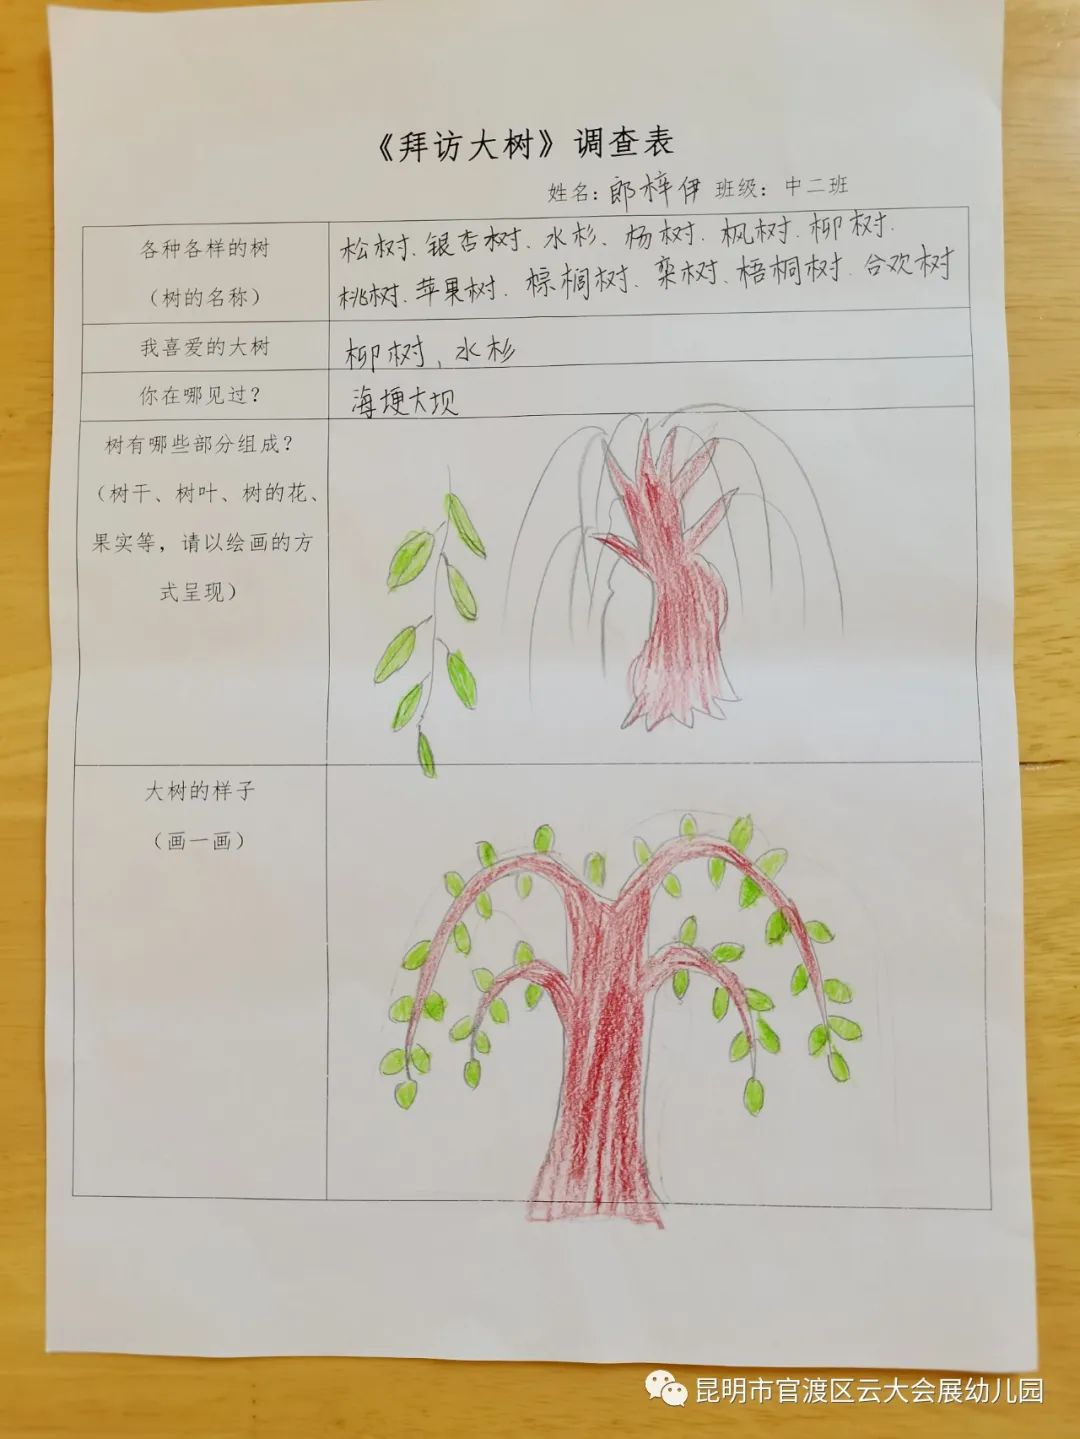 《拜访大树》调查表
姓名：郎梓伊 班级：中二班
各种各样的树
（树的名称）
松树、银杏树、水杉、杨树、枫树、柳树、
桃树、苹果树、棕榈树、栾树、梧桐树、合欢树
我喜爱的大树
柳树、水杉
你在哪见过？
海埂大坝
树有哪些部分组成？
（树干、树叶、树的花、
果实等，请以绘画的方
式呈现）
大树的样子
（画一画）
昆明市官渡区云大会展幼儿园